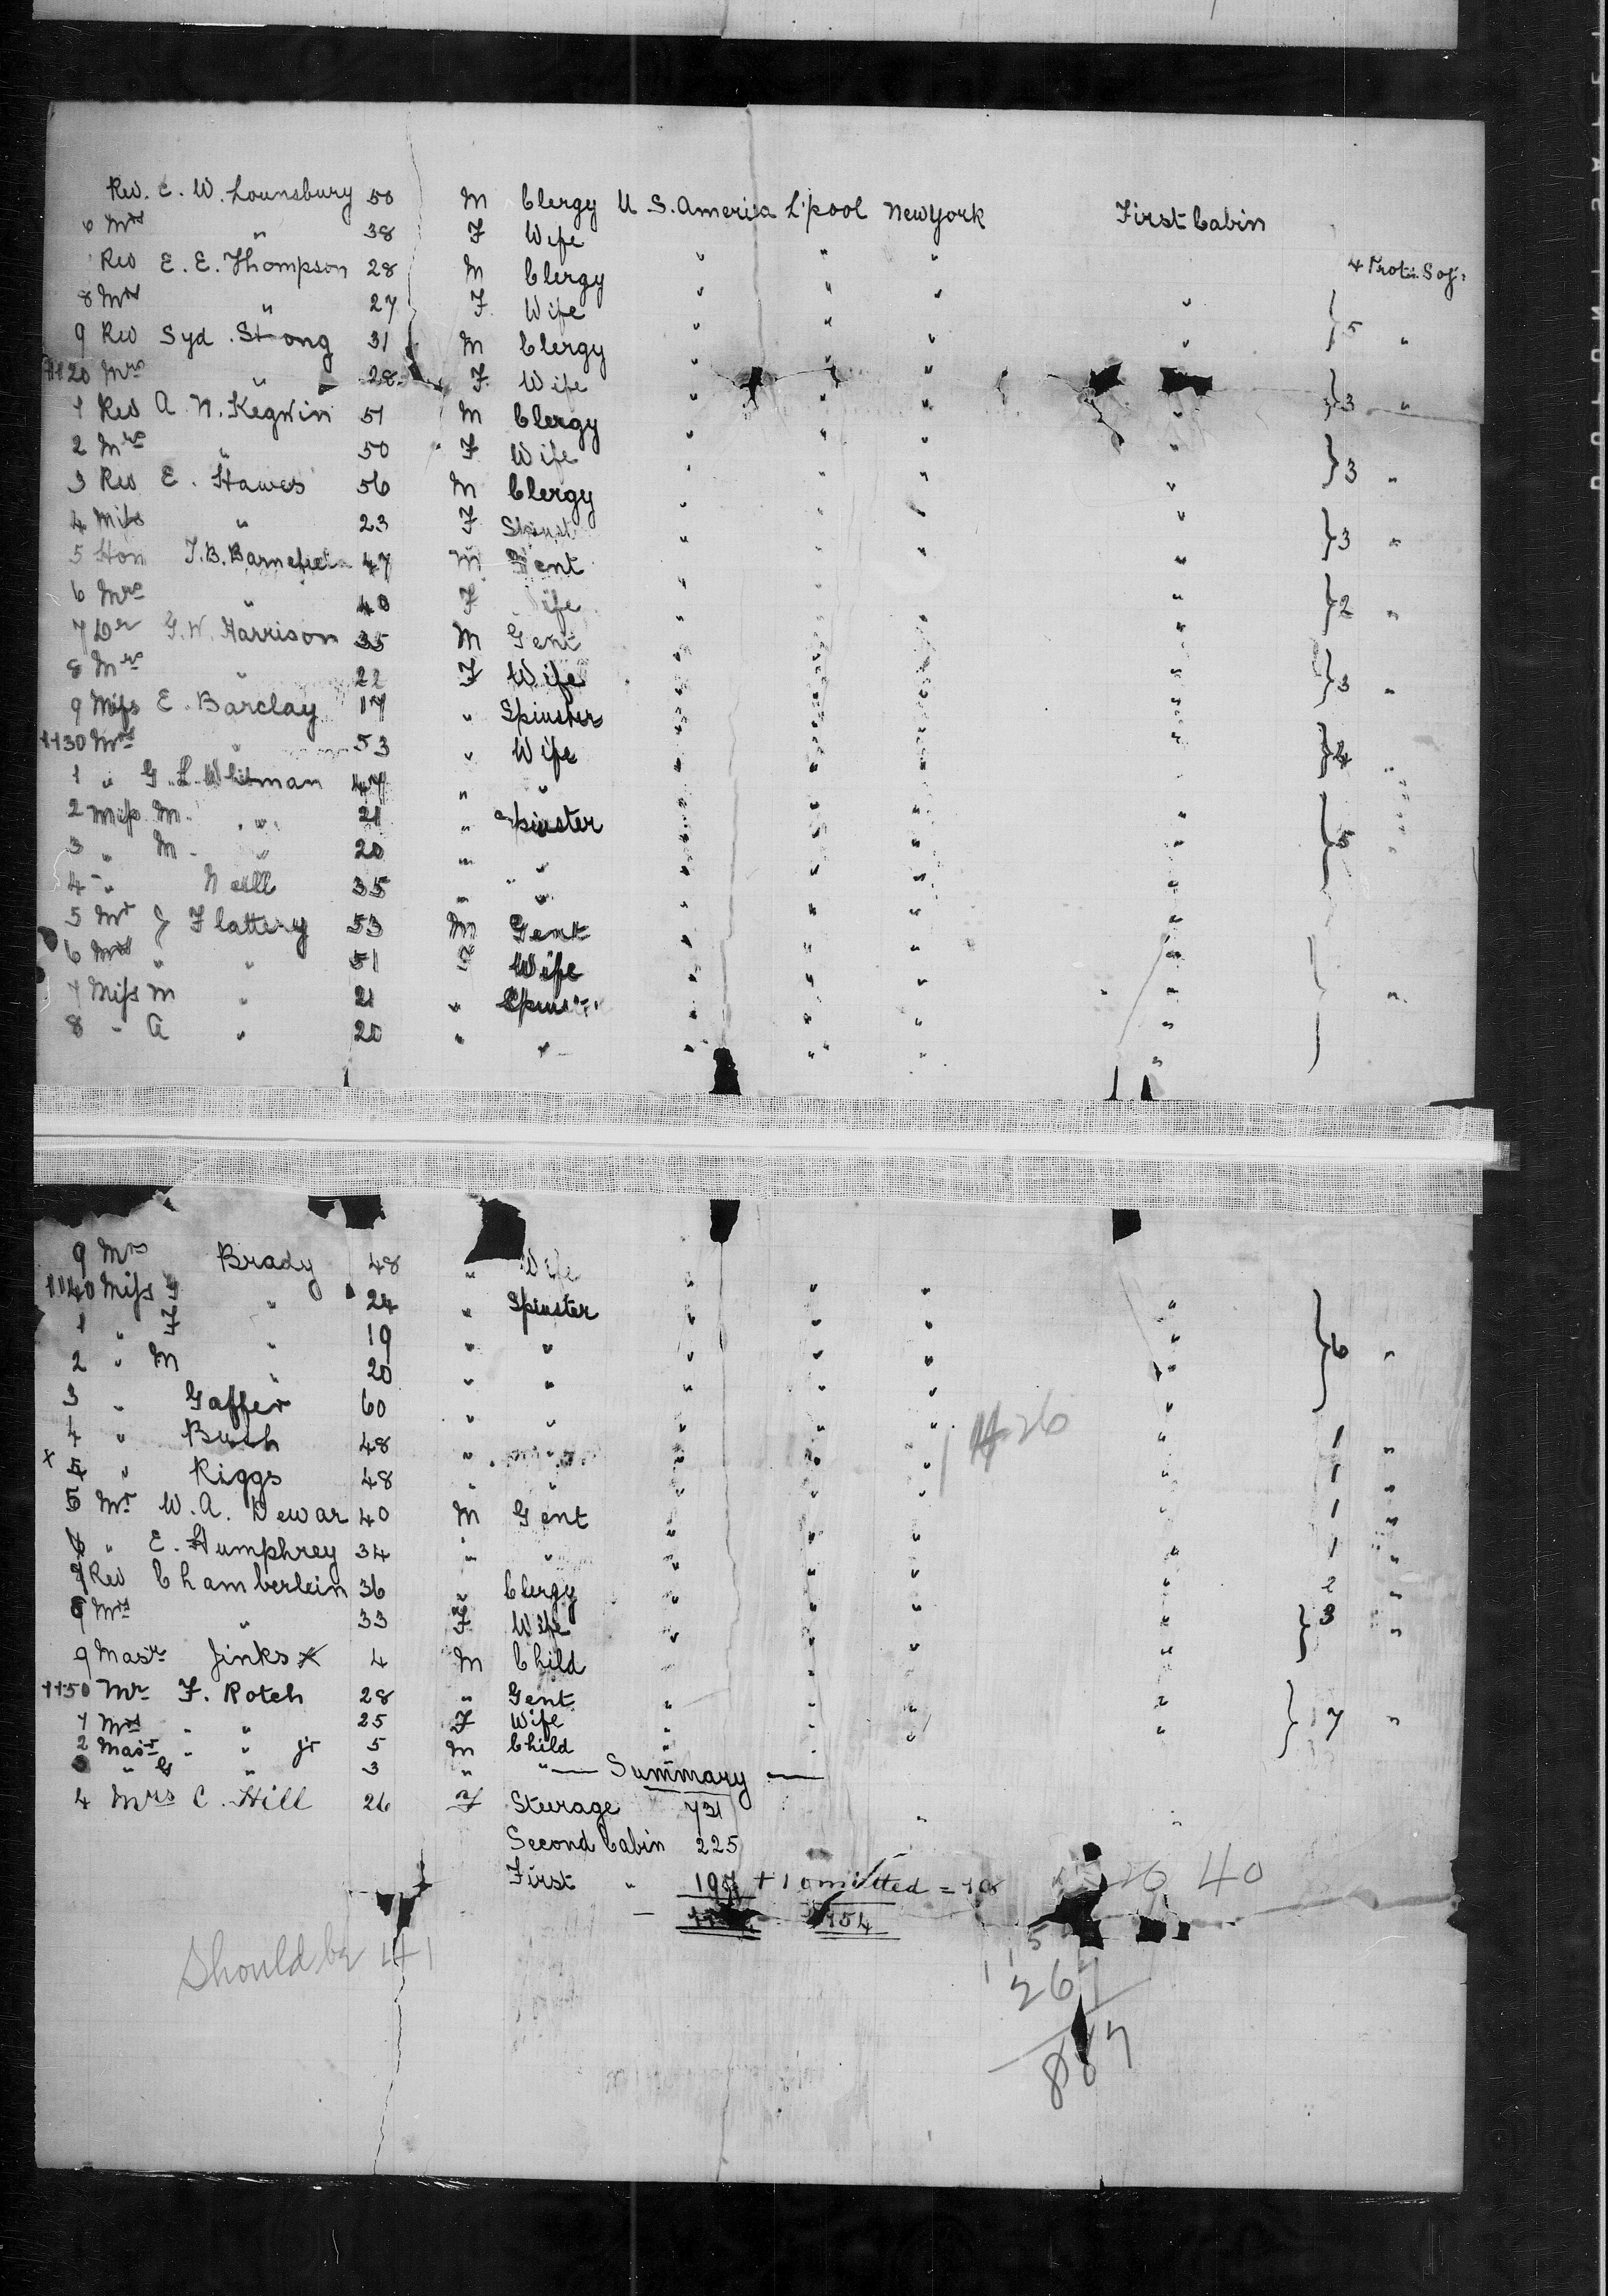 Rev. E. W. Lounsbury 50 M Clergy U S. America L'pool New York First Cabin
6 Mrs " 38 F Wife " " "
Rev E. E. Thompson 28 M Clergy " " " 4 Sof:
8 Mrs " 27 F Wife " " " "
9 Rev Syd. Strong 31 M Clergy " " " " } 5 "
1120 Mrs " 28 F Wife " " "
1 Rev A. N. Kegwin 51 M Clergy " " " " } 3 "
2 Mrs " 50 F Wife " " " "
3 Rev E. Hawes 56 M Clergy " " " " } 3 "
4 Miss " 23 F " " "
5 Hon T. B. 47 M Gent " " " " } 3 "
6 Mrs " 40 F Wife " " "
7 Dr G. W. Harrison 35 M Gent " " " " } 2 "
8 Mrs " 22 F Wife " " " "
9 Miss E. Barclay 17 " Spinster " " " " } 3 "
1130 Mrs " 53 " Wife " " " "
1 " G. L. Whitman 47 " " " " " }
2 Miss M. " 21 " Spinster " " " "
3 " M. " 20 " " " " " " } 5 "
4 " Neill 35 " " " " " "
5 Mr J Flattery 53 M Gent " " " "
6 Mrs " " 51 F Wife " " " "
7 Miss M " 21 " " " " " } "
8 " A " 20 " " " " " "
9 Mrs Brady 48 " Wife " " "
1140 Miss G " 24 " Spinster " " " "
1 " F " 19 " " " " " " } 6 "
2 " M " 20 " " " " " "
3 " Gaffer 60 " " " " " "
4 " Bush 48 " " " " " 1 "
x 5 " Riggs 48 " " " " " " 1 "
5 Mr W. A. Dewar 40 M Gent " " " " 1 "
6 " E. Humphrey 34 " " " " " " 1 "
7 Rev Chamberlein 36 " Clergy " " " " 2 "
8 Mrs " 33 F Wife " " " " } 3 "
9 Masr Jinks x 4 M Child " " " "
1150 Mr F. Rotch 28 " Gent " " " "
1 Mrs " " 25 F Wife " " " " } 7 "
2 Masr " " jr 5 M Child
3 " G " 3 " " — Summary —
4 Mrs C. Hill 26 F Steerage 731
Second Cabin 225
First " 197 + 1 omitted = 198
1154
Should be 41
26
40
267
887